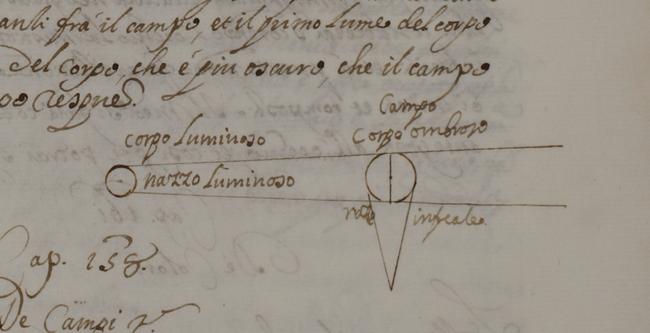 fra il campo, et il primo lume del corpo
Del corpo, che è piu oscuro, che il campo
Campo
corpo luminoso Corpo ombroso
razzo luminoso
Cap. 158.
De Campi